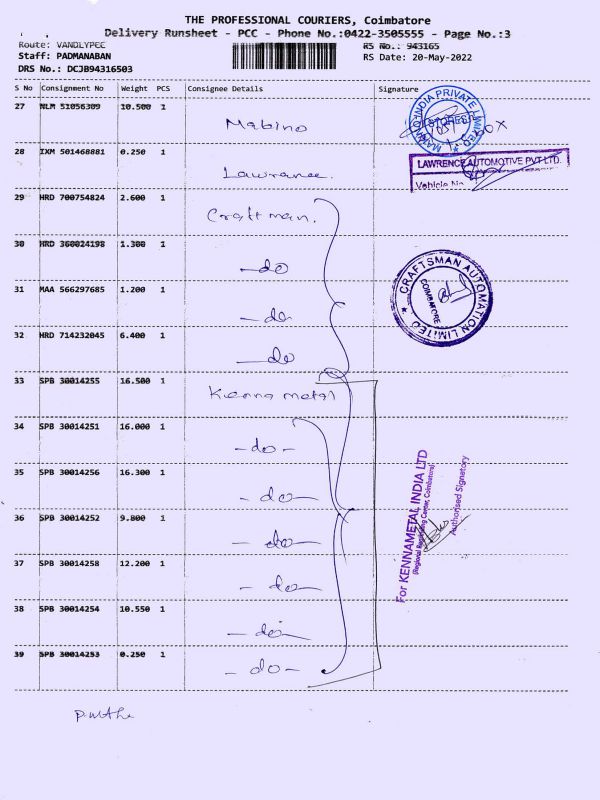 THE PROFESSIONAL COURIERS, Coimbatore
Delivery Runsheet - PCC - Phone No.:0422-3505555 - Page No.:3
Route: VANDLYPEC
RS No.: 943165
Staff: PADMANABAN
RS Date: 20-May-2022
DRS No.: DCJB94316503
S No Consignment No Weight PCS Consignee Details Signature
27 NLM 51056309 10.500 1 Mabino
INDIA PRIVATE LIMITED
STORES
28 IXM 501468881 0.250 1 Lawrance.
LAWRENCE AUTOMOTIVE PVT LTD.
Vehicle No
29 HRD 700754824 2.600 1 Craftman.
30 HRD 360024198 1.300 1 —do
31 MAA 566297685 1.200 1 —do
CRAFTSMAN AUTOMATION LIMITED
COIMBATORE
32 HRD 714232045 6.400 1 —do
33 SPB 30014255 16.500 1 Kenna metal
34 SPB 30014251 16.000 1 -do-
35 SPB 30014256 16.300 1 -do-
36 SPB 30014252 9.800 1 -do-
For KENNAMETAL INDIA LTD
Authorised Signatory
37 SPB 30014258 12.200 1 -do-
38 SPB 30014254 10.550 1 -do-
39 SPB 30014253 0.250 1 -do-